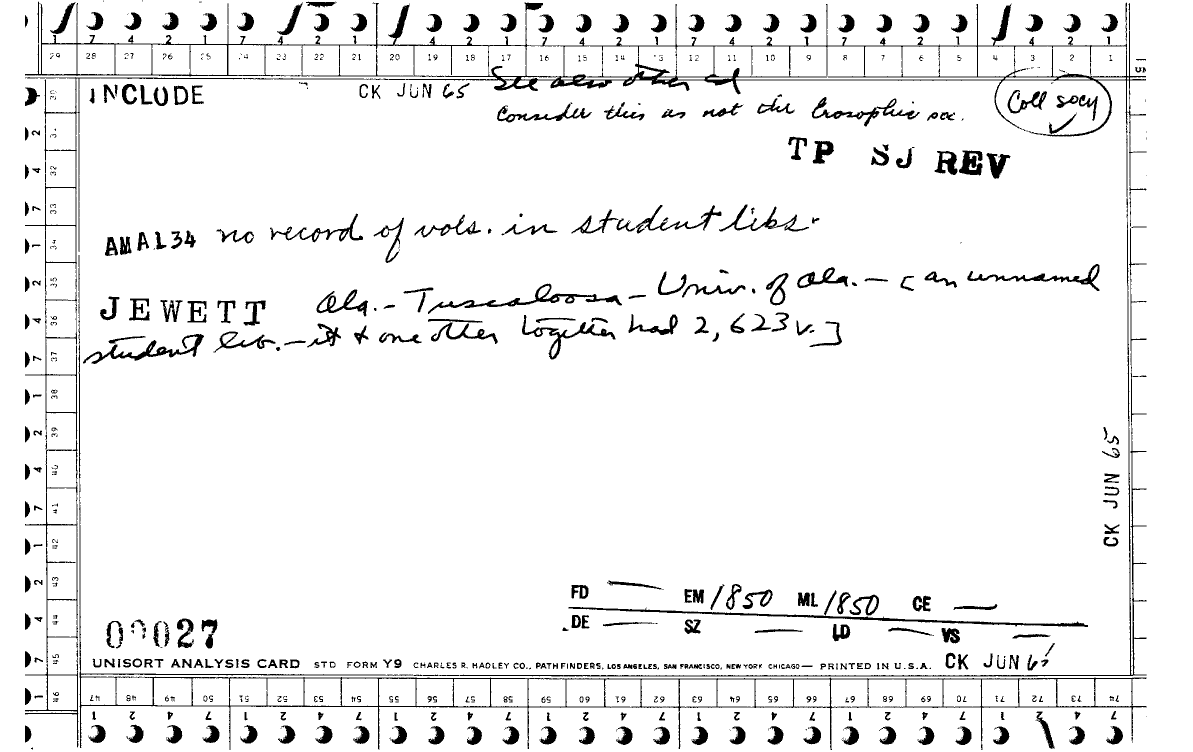 1 7 4 2 1 7 4 2 1 7 4 2 1 7 4 2 1 7 4 2 1 7 4 2 1 7 4 2 1
29 28 27 26 25 24 23 22 21 20 19 18 17 16 15 14 13 12 11 10 9 8 7 6 5 4 3 2 1
INCLUDE CK JUN 65 See also other cd
Consider this as not the Erosophic soc. Coll socy
TP SJ REV
AMAL34 no record of vols. in student libs.
JEWETT Ala. - Tuscaloosa - Univ. of Ala. - [an unnamed
student lib. - it & one other together had 2,623 v.]
CK JUN 65
FD — EM 1850 ML 1850 CE —
DE — SZ — LD — VS —
00027
UNISORT ANALYSIS CARD STD FORM Y9 CHARLES R. HADLEY CO., PATHFINDERS, LOS ANGELES, SAN FRANCISCO, NEW YORK CHICAGO — PRINTED IN U.S.A. CK JUN 65
47 48 49 50 51 52 53 54 55 56 57 58 59 60 61 62 63 64 65 66 67 68 69 70 71 72 73 74
1 2 4 7 1 2 4 7 1 2 4 7 1 2 4 7 1 2 4 7 1 2 4 7 1 2 4 7